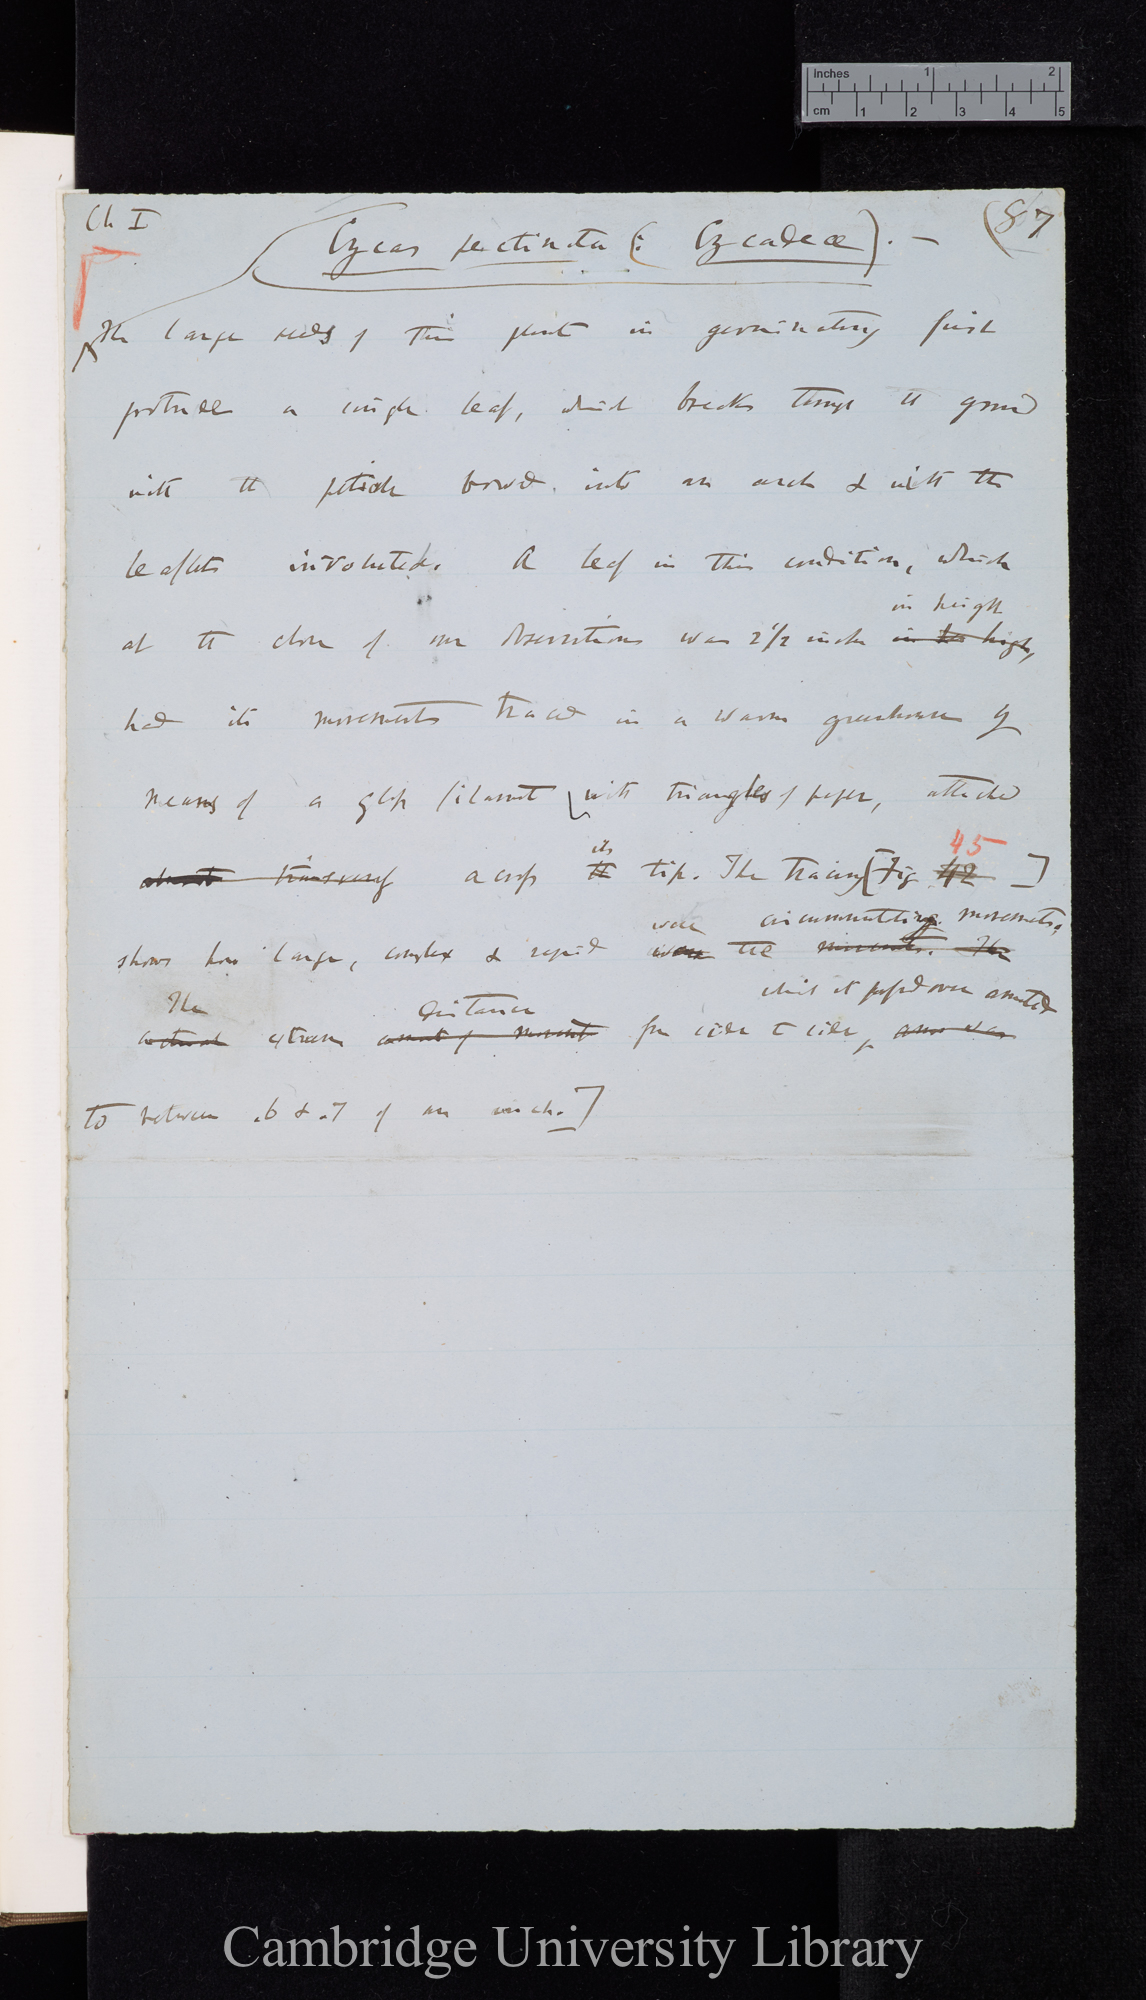 Inches 1 2
cm 1 2 3 4 5
Ch I
(87
Cycas pectinata (: Cycadeæ). —
The large seeds of this plant in germinating first
protrude a single leaf, which breaks through the ground
with the petiole bowed into an arch & with the
leaflets involuted. A leaf in this condition, which
in height
at the close of our observations was 2 1/2 inches in high,
had its movements traced in a warm greenhouse by
means of a glass filament with triangles of paper, attached
45
its
transversely across the tip. The tracing [Fig 42 ]
were circumnutating movements,
shows how large, complex & rapid were the movements. The
which it passed over amounted
The distance
actual extreme amount of movement from side to side, and was
to between .6 & .7 of an inch.]
Cambridge University Library